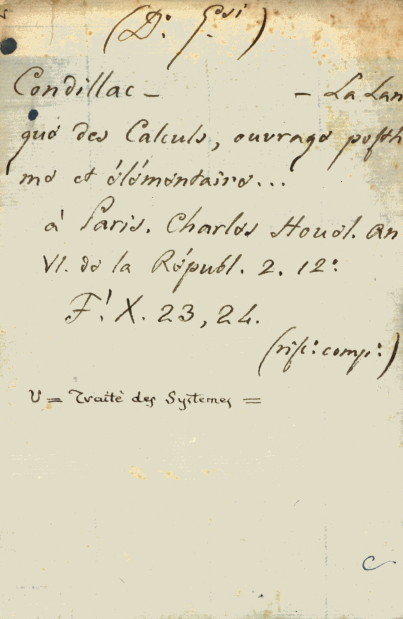 (D: G.si)
Condillac - - La Lan
gue des Calculs, ouvrage posth
me et élémentaire...
à Paris. Charles Houel. an
VI. de la Républ. 2. 12:
F! X. 23, 24.
(rif: comp:)
V = Traitè des Systemes =